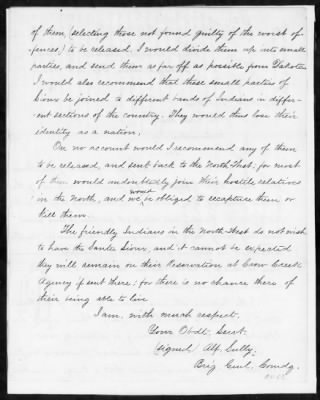 of them, (selecting those not found guilty of the worst of-
fences,) to be released. I would divide them up into small
parties, and send them as far off as possible from Dakota.
I would also recommend that these small parties of
Sioux be joined to different bands of Indians in differ-
ent sections of the country. They would thus lose their
identity as a nation.
On no account would I recommend any of them
to be released, and sent back to the North West; for most
of them would undoubtedly join their hostile relations
in the North, and we would be obliged to recapture them or
kill them.
The friendly Indians in the North West do not wish
to have the Santee Sioux, and it cannot be expected
they will remain on their Reservation at Crow Creek
Agency if sent there; for there is no chance there of
their being able to live
I am, with much respect.
Your Obdt. Servt.
(signed) Alf. Sully,
Brig Genl. Comdg.